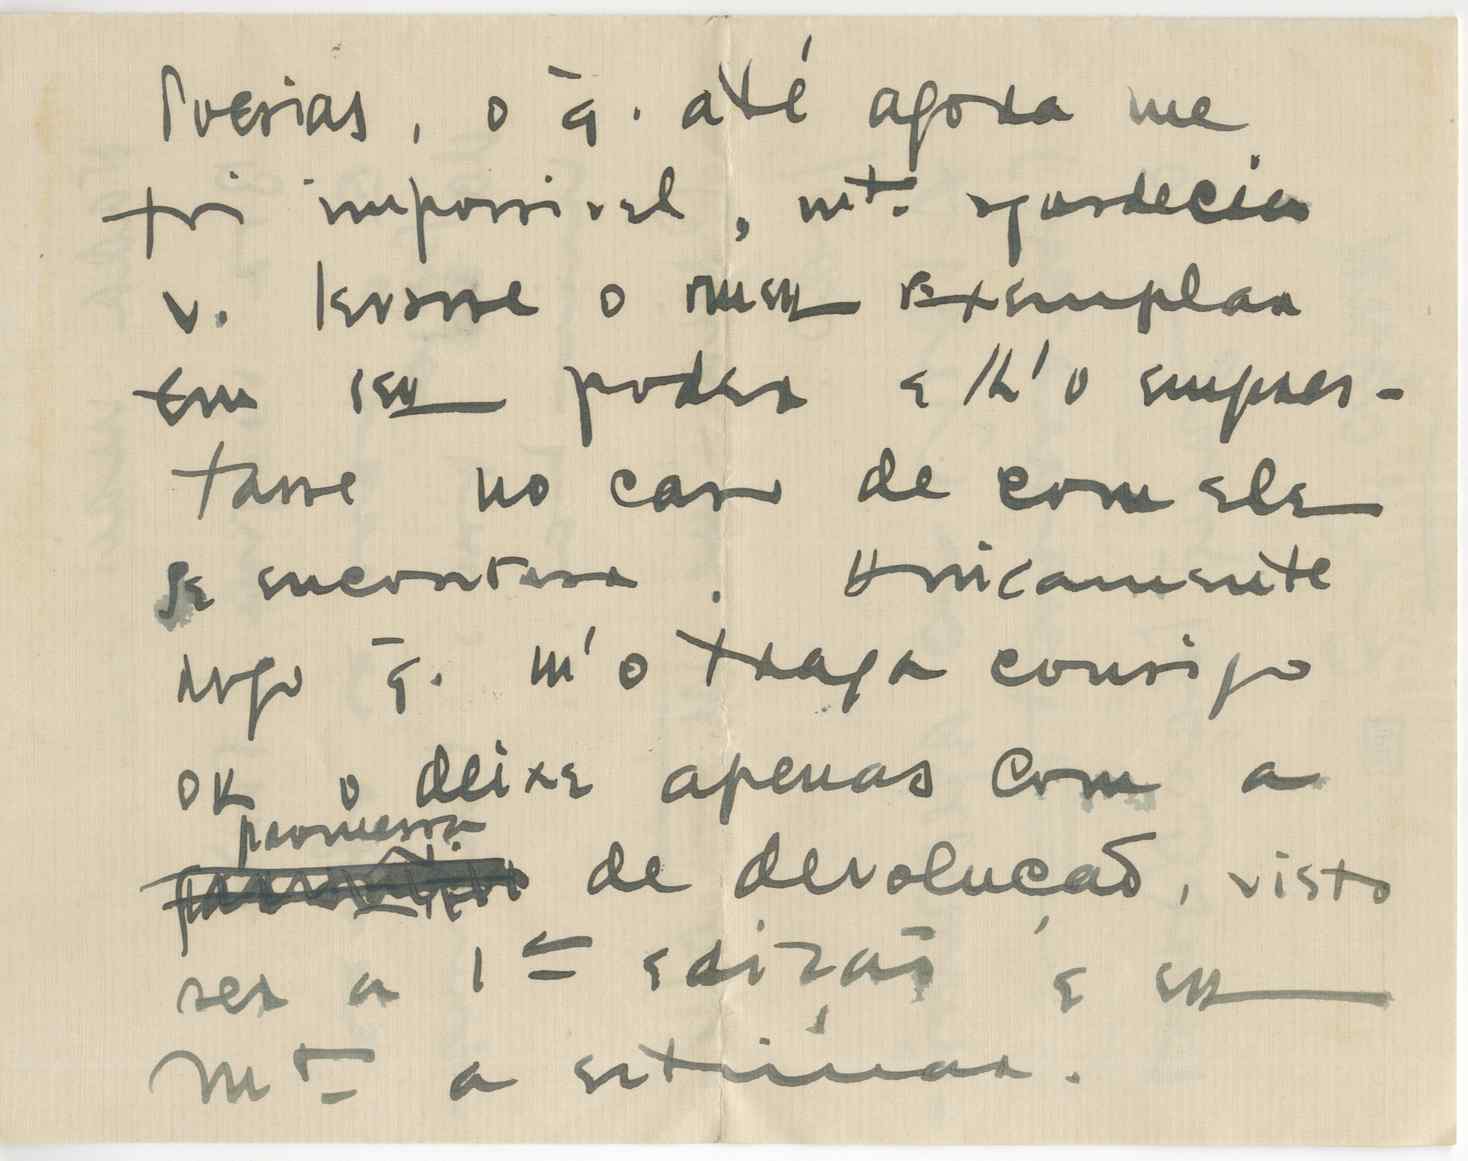 Poesias, o q̄. até agora me
foi impossivel, mto. agradecia
v. levasse o meu exemplar
em seu poder e lh'o empres-
tasse no caso de com ele
se encontrar. Unicamente
rogo q̄. m'o traga consigo
ou o deixe apenas com a
promessa
de devolução, visto
ser a 1ª edição e eu
mto a estimar.